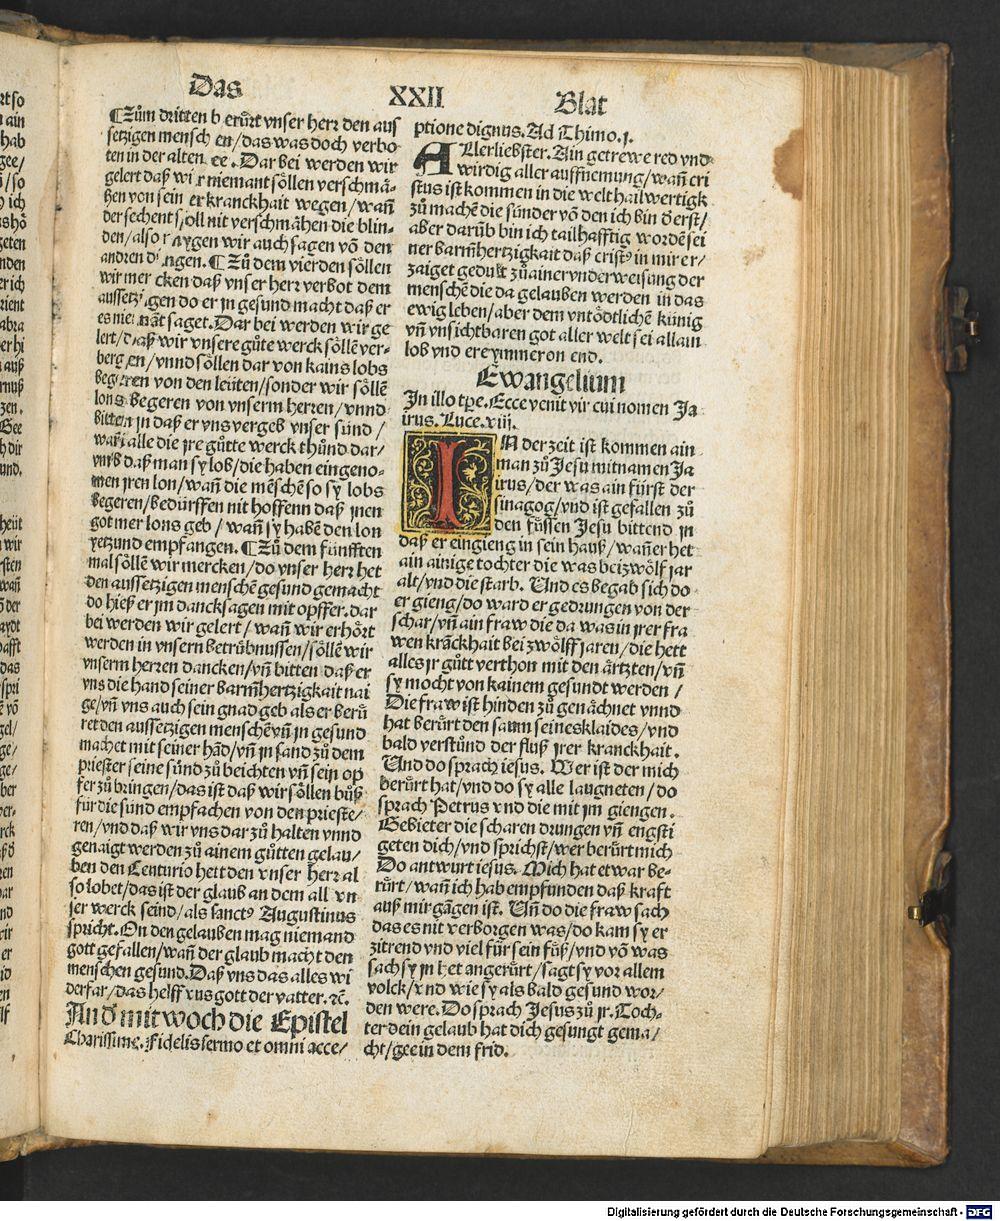 Das XXII Blat
¶Zům dritten b erůrt vnser herr den aus
setzigen mensch en/das was doch verbo
ten in der alten ee. Dar bei werden wir
gelert daß wi r niemant söllen verschmä-
hen von sein er kranckhait wegen/wañ
der sechent s oll nit verschmähen die blin-
den/also mügen wir auch sagen võ den
andren dingen. ¶Zů dem vierden söllen
wir mer cken daß vnser herr verbot dem
aussetz gen do er jn gesund macht daß er
es niemãt saget. Dar bei werden wir ge
lert/daß wir vnsere gůte werck söllē ver-
bergen/vnnd söllen dar von kains lobs
begeren von den leüten/sonder wir söllē
lons begeren von vnserm herren/vnnd
bitten jn daß er vns vergeb vnser sünd/
wañ alle die jre gůtte werck thůnd dar/
vmb daß man sy lob/die haben eingeno-
men jren lon/wañ die mēschē so sy lobs
begeren/bedürffen nit hoffenn daß jnen
got mer lons geb/wañ sy habē den lon
yetzund empfangen. ¶Zů dem fünfften
mal söllē wir mercken/do vnser herr het
den aussetzigen menschē gesund gemacht
do hieß er jm dancksagen mit opffer. dar
bei werden wir gelert/wañ wir erhört
werden in vnsern betrübnussen/söllē wir
vnserm herren dancken/vñ bitten daß er
vns die hand seiner barmhertzigkait nai
ge/vñ vns auch sein gnad geb als er berů
ret den aussetzigen menschē vñ jn gesund
machet mit seiner hãd/vñ jn sand zů dem
priester seine sünd zů beichten vñ sein op
fer zů bringen/das ist daß wir söllen bůß
für die sünd empfachen von den prieste/
ren/vnd daß wir vns dar zů halten vnnd
genaigt werden zů ainem gůtten gelau/
ben den Centurio hett den vnser herr al
so lobet/das ist der glaub an dem all vn
ser werck seind/als sanctꝰ Augustinus
spricht. On den gelauben mag niemand
gott gefallen/wañ der glaub macht den
menschen gesund. Daß vns das alles wi
derfar/das helff vns gott der vatter. ꝛc̄.
An ď mitwoch die Epistel
Charissime. Fidelis sermo et omni acce/
ptione dignus. Ad Thimo. j.
ALlerliebster. Ain getrewe red vnd
wirdig aller auffnemung/wañ cri
stus ist kommen in die welt hailwertigk
zů machē die sünder võ den ich bin ď erst/
aber darüb bin ich tailhafftig wordē sei
ner barmhertzigkait daß cristꝰ in mir er/
zaiget gedult zů ainer vnderweisung der
menschē die da gelauben werden in das
ewig leben/aber dem vntödtlichē künig
vñ vnsichtbaren got aller welt sei allain
lob vnd ere ymmer on end.
Ewangelium
In illo tpe. Ecce venit vir cui nomen Ja
irus. Luce. viij.
IN der zeit ist kommen ain
man zů Jesu mit namen Ja
irus/der was ain fürst der
sinagog/vnd ist gefallen zů
den füssen Jesu bittend jn
daß er eingieng in sein hauß/wañ er het
ain ainige tochter die was bei zwölf jar
alt/vnd die starb. Und es begab sich do
er gieng/do ward er gedrungen von der
schar/vñ ain fraw die da was in jrer fra
wen krãckhait bei zwölff jaren/die hett
alles jr gůtt verthon mit den ärtzten/vñ
sy mocht von kainem gesundt werden/
Die fraw ist hinden zů gen ächnet vnnd
hat berůrt den saum seines klaides/vnd
bald verstůnd der fluß jrer kranckhait.
Und do sprach iesus. Wer ist der mich
berůrt hat/vnd do sy alle laugneten/do
sprach Petrus vnd die mit jm giengen.
Gebieter die scharen drungen vñ engsti
geten dich/vnd sprichst/wer berůrt mich
Do antwurt iesus. Mich hat etwar be-
růrt/wañ ich hab empfunden daß kraft
auß mir gãgen ist. Uñ do die fraw sach
das es nit verborgen was/do kam sy er
zitrend vnd viel für sein füß/vnd võ was
sach sy jn het angerůrt/sagt sy vor allem
volck/vnd wie sy als bald gesund wor/
den were. Do sprach Jesus zů jr. Toch-
ter dein gelaub hat dich gesungt gema/
cht/gee in dem frid.
Digitalisierung gefördert durch die Deutsche Forschungsgemeinschaft - DFG